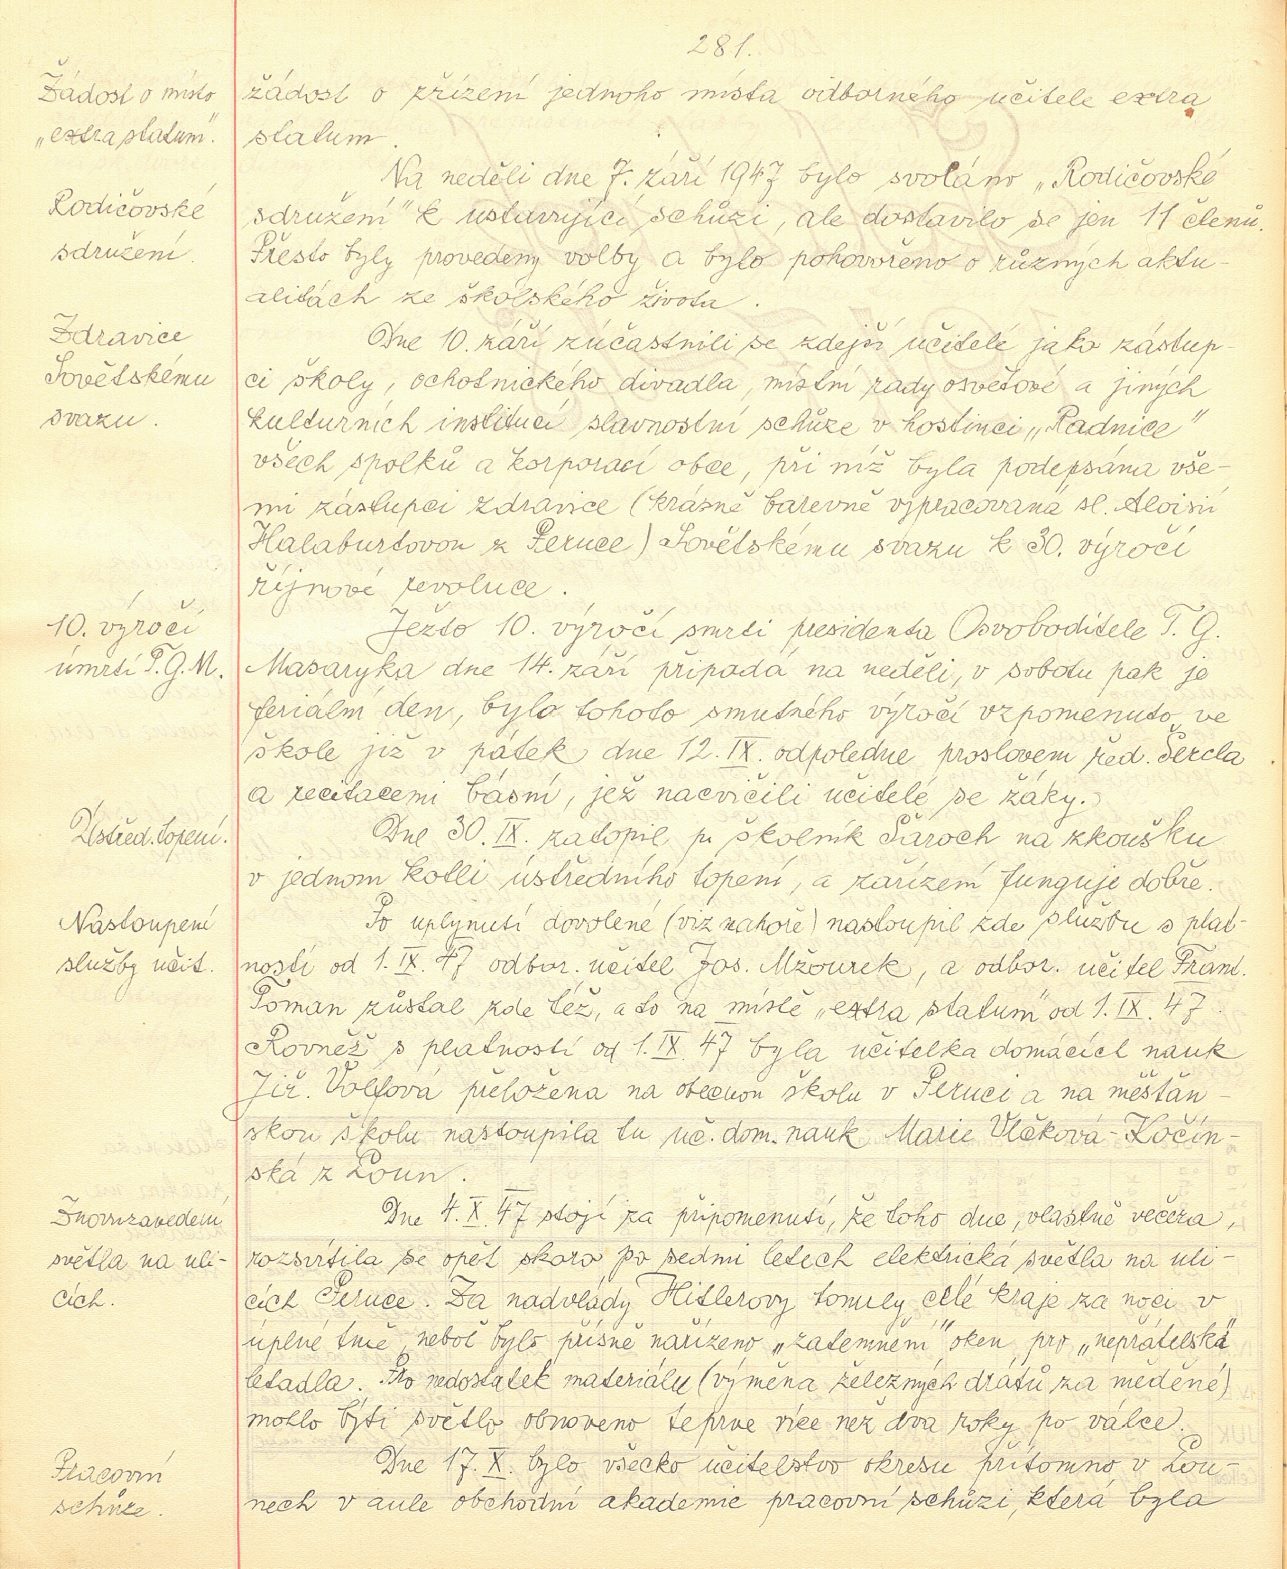 281.
Žádost o místo
„extra statum".
žádost o zřízení jednoho místa odborného učitele extra
statum.
Rodičovské
sdružení.
Na neděli dne 7. září 1947 bylo svoláno „Rodičovské
sdružení" k ustavující schůzi, ale dostavilo se jen 11 členů.
Přesto byly provedeny volby a bylo pohovořeno o různých aktu-
alitách ze školského života.
Zdravice
Sovětskému
svazu.
Dne 10. září zúčastnili se zdejší učitelé jako zástup-
ci školy, ochotnického divadla, místní rady osvětové a jiných
kulturních institucí slavnostní schůze v hostinci „Radnice"
všech spolků a korporací obce, při níž byla podepsána vše-
mi zástupci zdravice (krásně barevně vypracovaná sl. Aloisií
Halaburtovou z Peruce) Sovětskému svazu k 30. výročí
říjnové revoluce.
10. výročí
úmrtí T.G.M.
Ježto 10. výročí smrti presidenta Osvoboditele T. G.
Masaryka dne 14. září připadá na neděli, v sobotu pak je
feriální den, bylo tohoto smutného výročí vzpomenuto ve
škole již v pátek dne 12. IX. odpoledne proslovem řed. Šercla
a recitacemi básní, jež nacvičili učitelé se žáky.
Ústřed. topení.
Dne 30. IX. zatopil p. školník Šároch na zkoušku
v jednom kotli ústředního topení, a zařízení funguje dobře.
Nastoupení
služby učit.
Po uplynutí dovolené (viz nahoře) nastoupil zde službu s plat-
ností od 1. IX. 47 odbor. učitel Jos. Mžourek, a odbor. učitel Frant.
Toman zůstal zde též, a to na místě „extra statum" od 1. IX. 47.
Rovněž s platností od 1. IX. 47 byla učitelka domácích nauk
Jiř. Volfová přeložena na obecnou školu v Peruci a na měšťan-
skou školu nastoupila tu uč. dom. nauk Marie Vlčková-Kočín-
ská z Loun.
Znovuzavedení
světla na uli-
cích.
Dne 4. X. 47 stojí za připomenutí, že toho dne, vlastně večera,
rozsvítila se opět skoro po sedmi letech elektrická světla na uli-
cích Peruce. Za nadvlády Hitlerovy tonuly celé kraje za noci v
úplné tmě, neboť bylo přísně nařízeno „zatemnění" oken pro „nepřátelská"
letadla. Pro nedostatek materiálu (výměna železných drátů za měděné)
mohlo býti světlo obnoveno teprve více než dva roky po válce.
Pracovní
schůze.
Dne 17. X. bylo všecko učitelstvo okresu přítomno v Lou-
nech v aule obchodní akademie pracovní schůzi, která byla